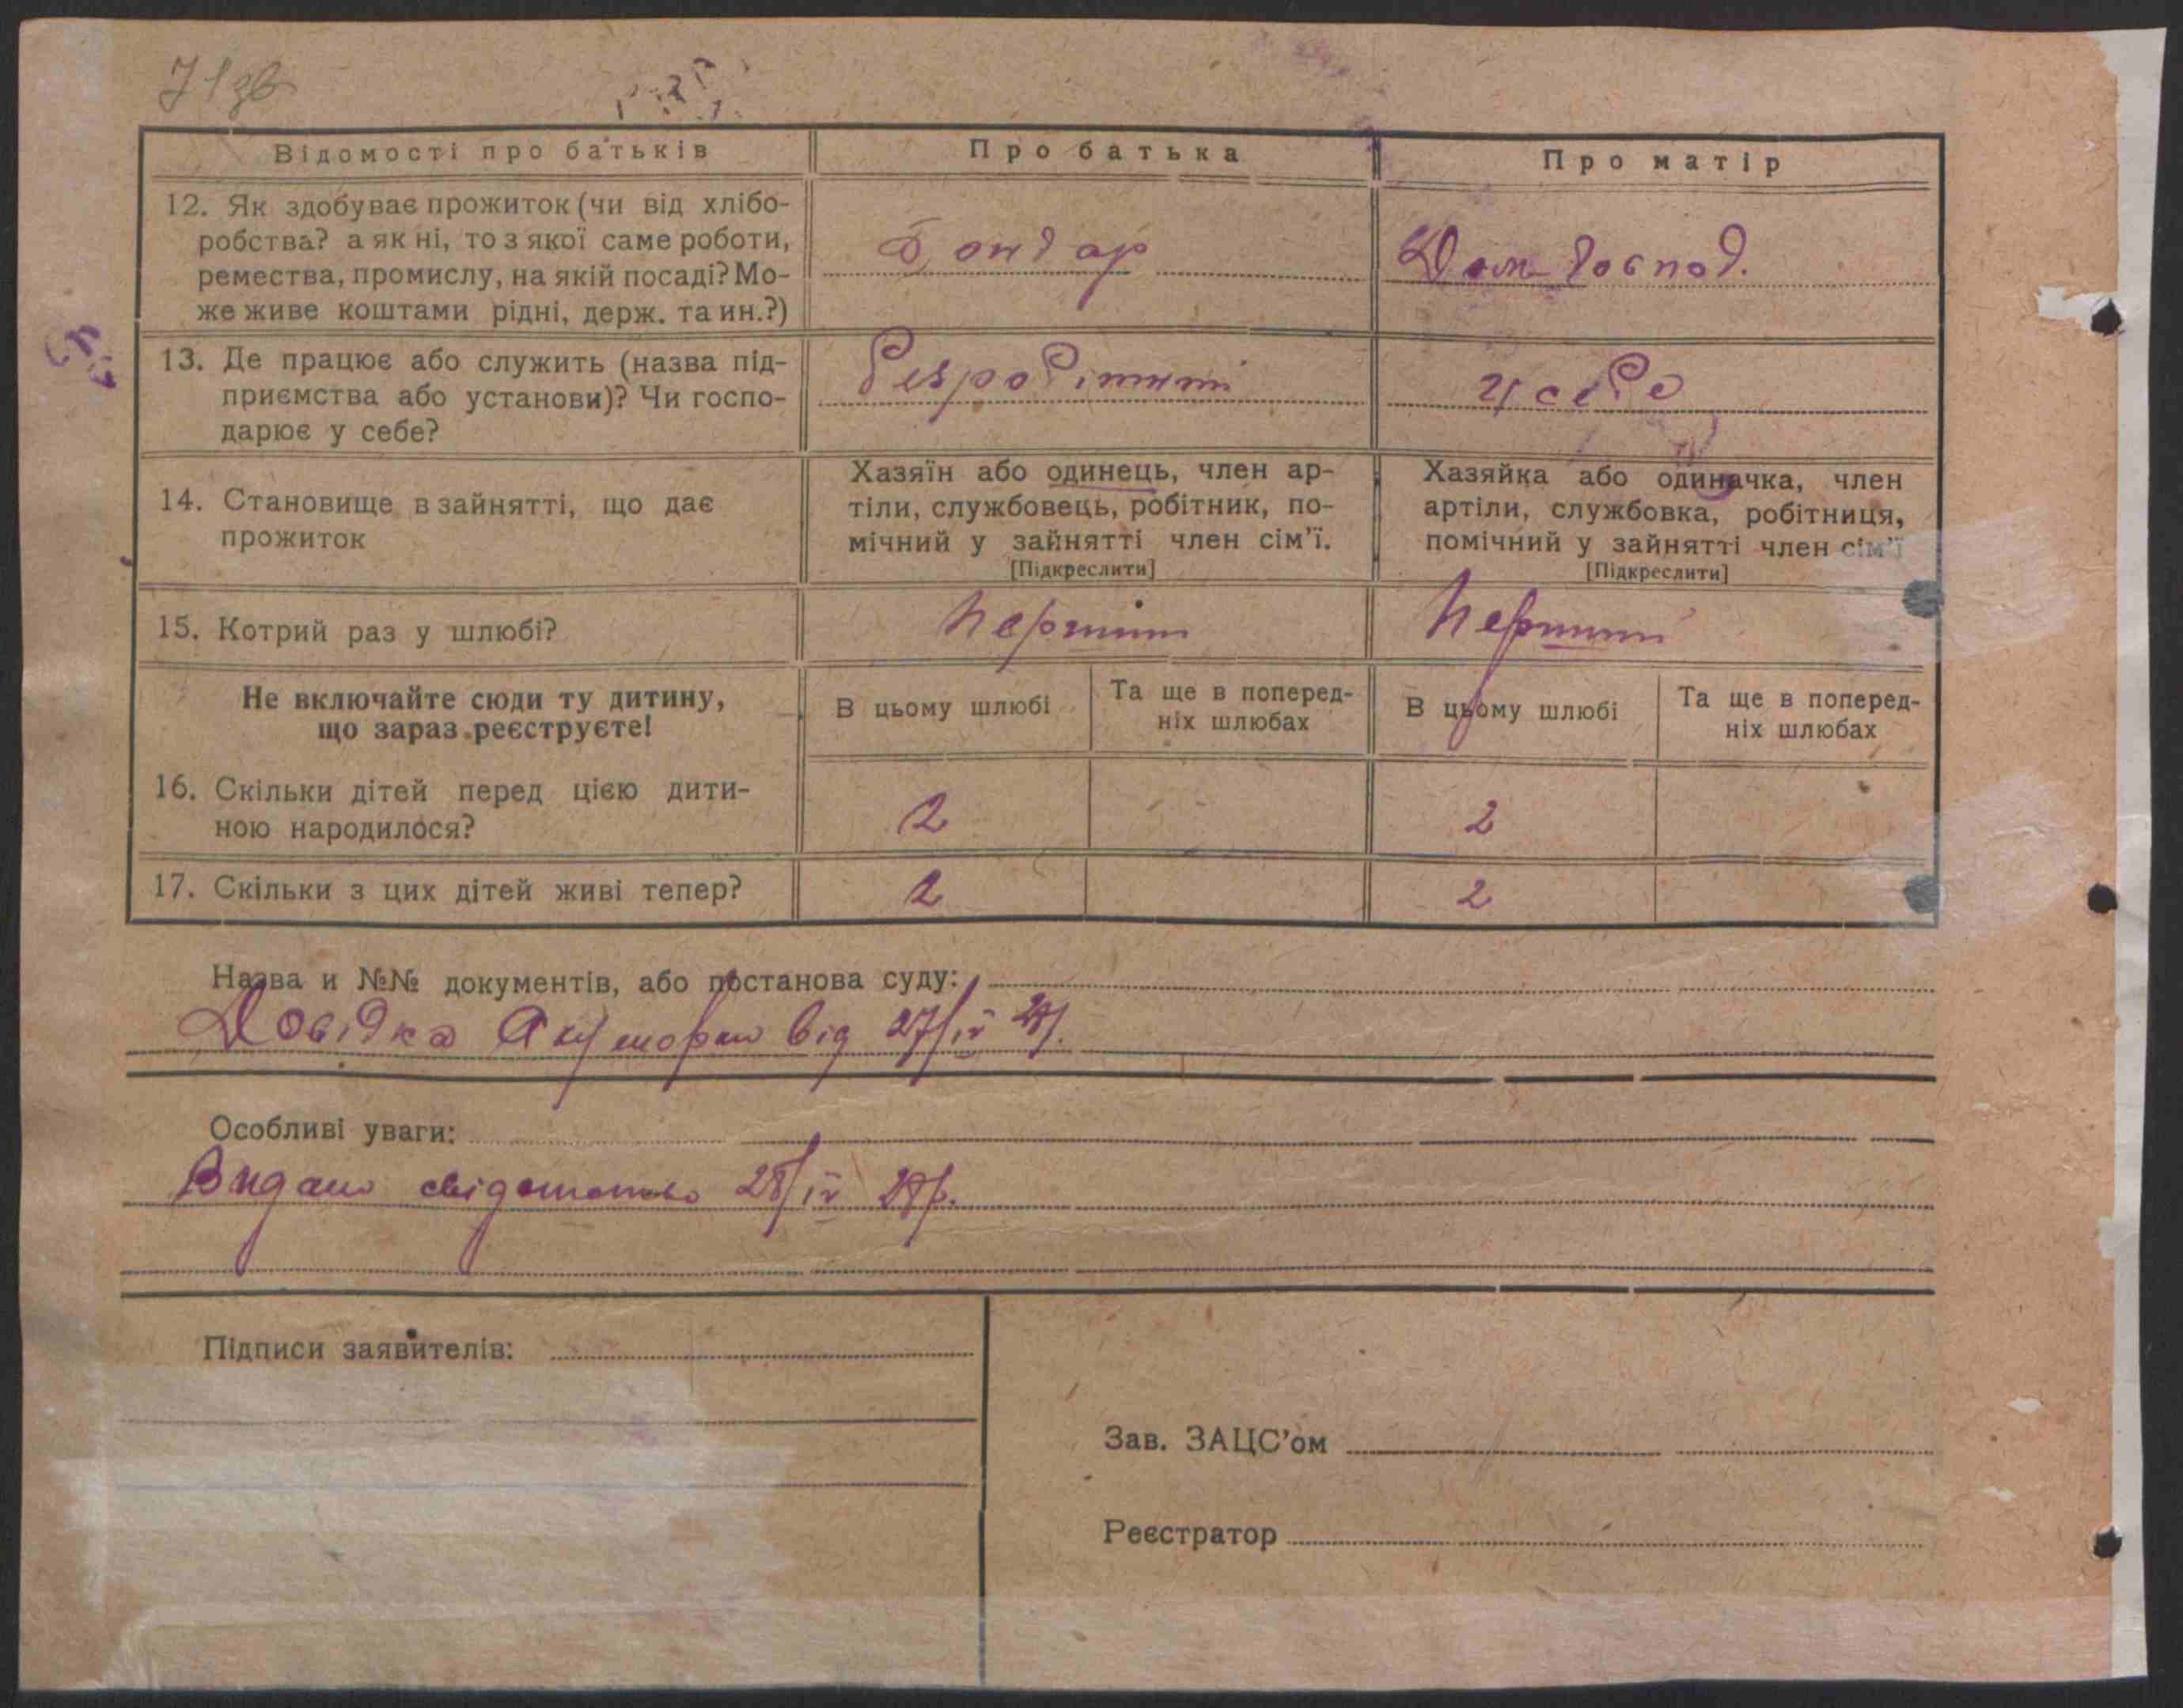 71зв
Відомості про батьків
Про батька
Про матір
12. Як здобуває прожиток (чи від хлібо-
робства? а як ні, то з якої саме роботи,
ремества, промислу, на якій посаді? Мо-
же живе коштами рідні, держ. та ин.?)
Бондар
Дом. господ.
13. Де працює або служить (назва під-
приємства або установи)? Чи госпо-
дарює у себе?
безробітний
у себе
14. Становище в зайнятті, що дає
прожиток
Хазяїн або одинець, член ар-
тіли, службовець, робітник, по-
мічний у зайнятті член сім'ї.
[Підкреслити]
Хазяйка або одиначка, член
артіли, службовка, робітниця,
помічний у зайнятті член сім'ї
[Підкреслити]
15. Котрий раз у шлюбі?
Перший
Перший
Не включайте сюди ту дитину,
що зараз реєструєте!
В цьому шлюбі
Та ще в поперед-
ніх шлюбах
В цьому шлюбі
Та ще в поперед-
ніх шлюбах
16. Скільки дітей перед цією дити-
ною народилося?
2
2
17. Скільки з цих дітей живі тепер?
2
2
Назва и №№ документів, або постанова суду:
Довідка Акушорки від 27/IV
Особливі уваги:
Видано свідотство 28/IV 28р.
Підписи заявителів:
Зав. ЗАЦС'ом
Реєстратор